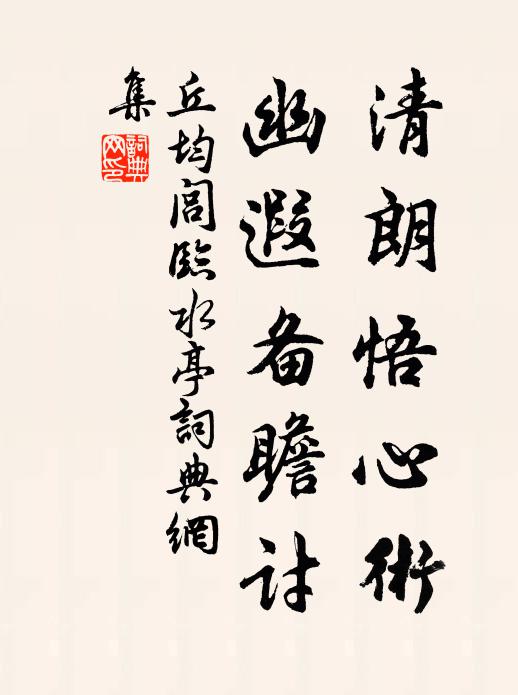 清朗悟心術
幽遐备瞻討
丘均閭臨水亭詞典網
集
詞典網印